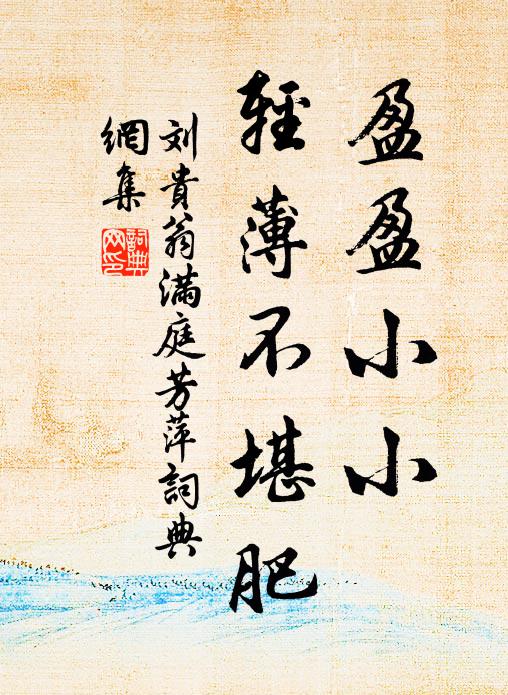 盈盈小小
輕薄不堪肥
刘貴翁滿庭芳萍詞典
網集
詞典
网印